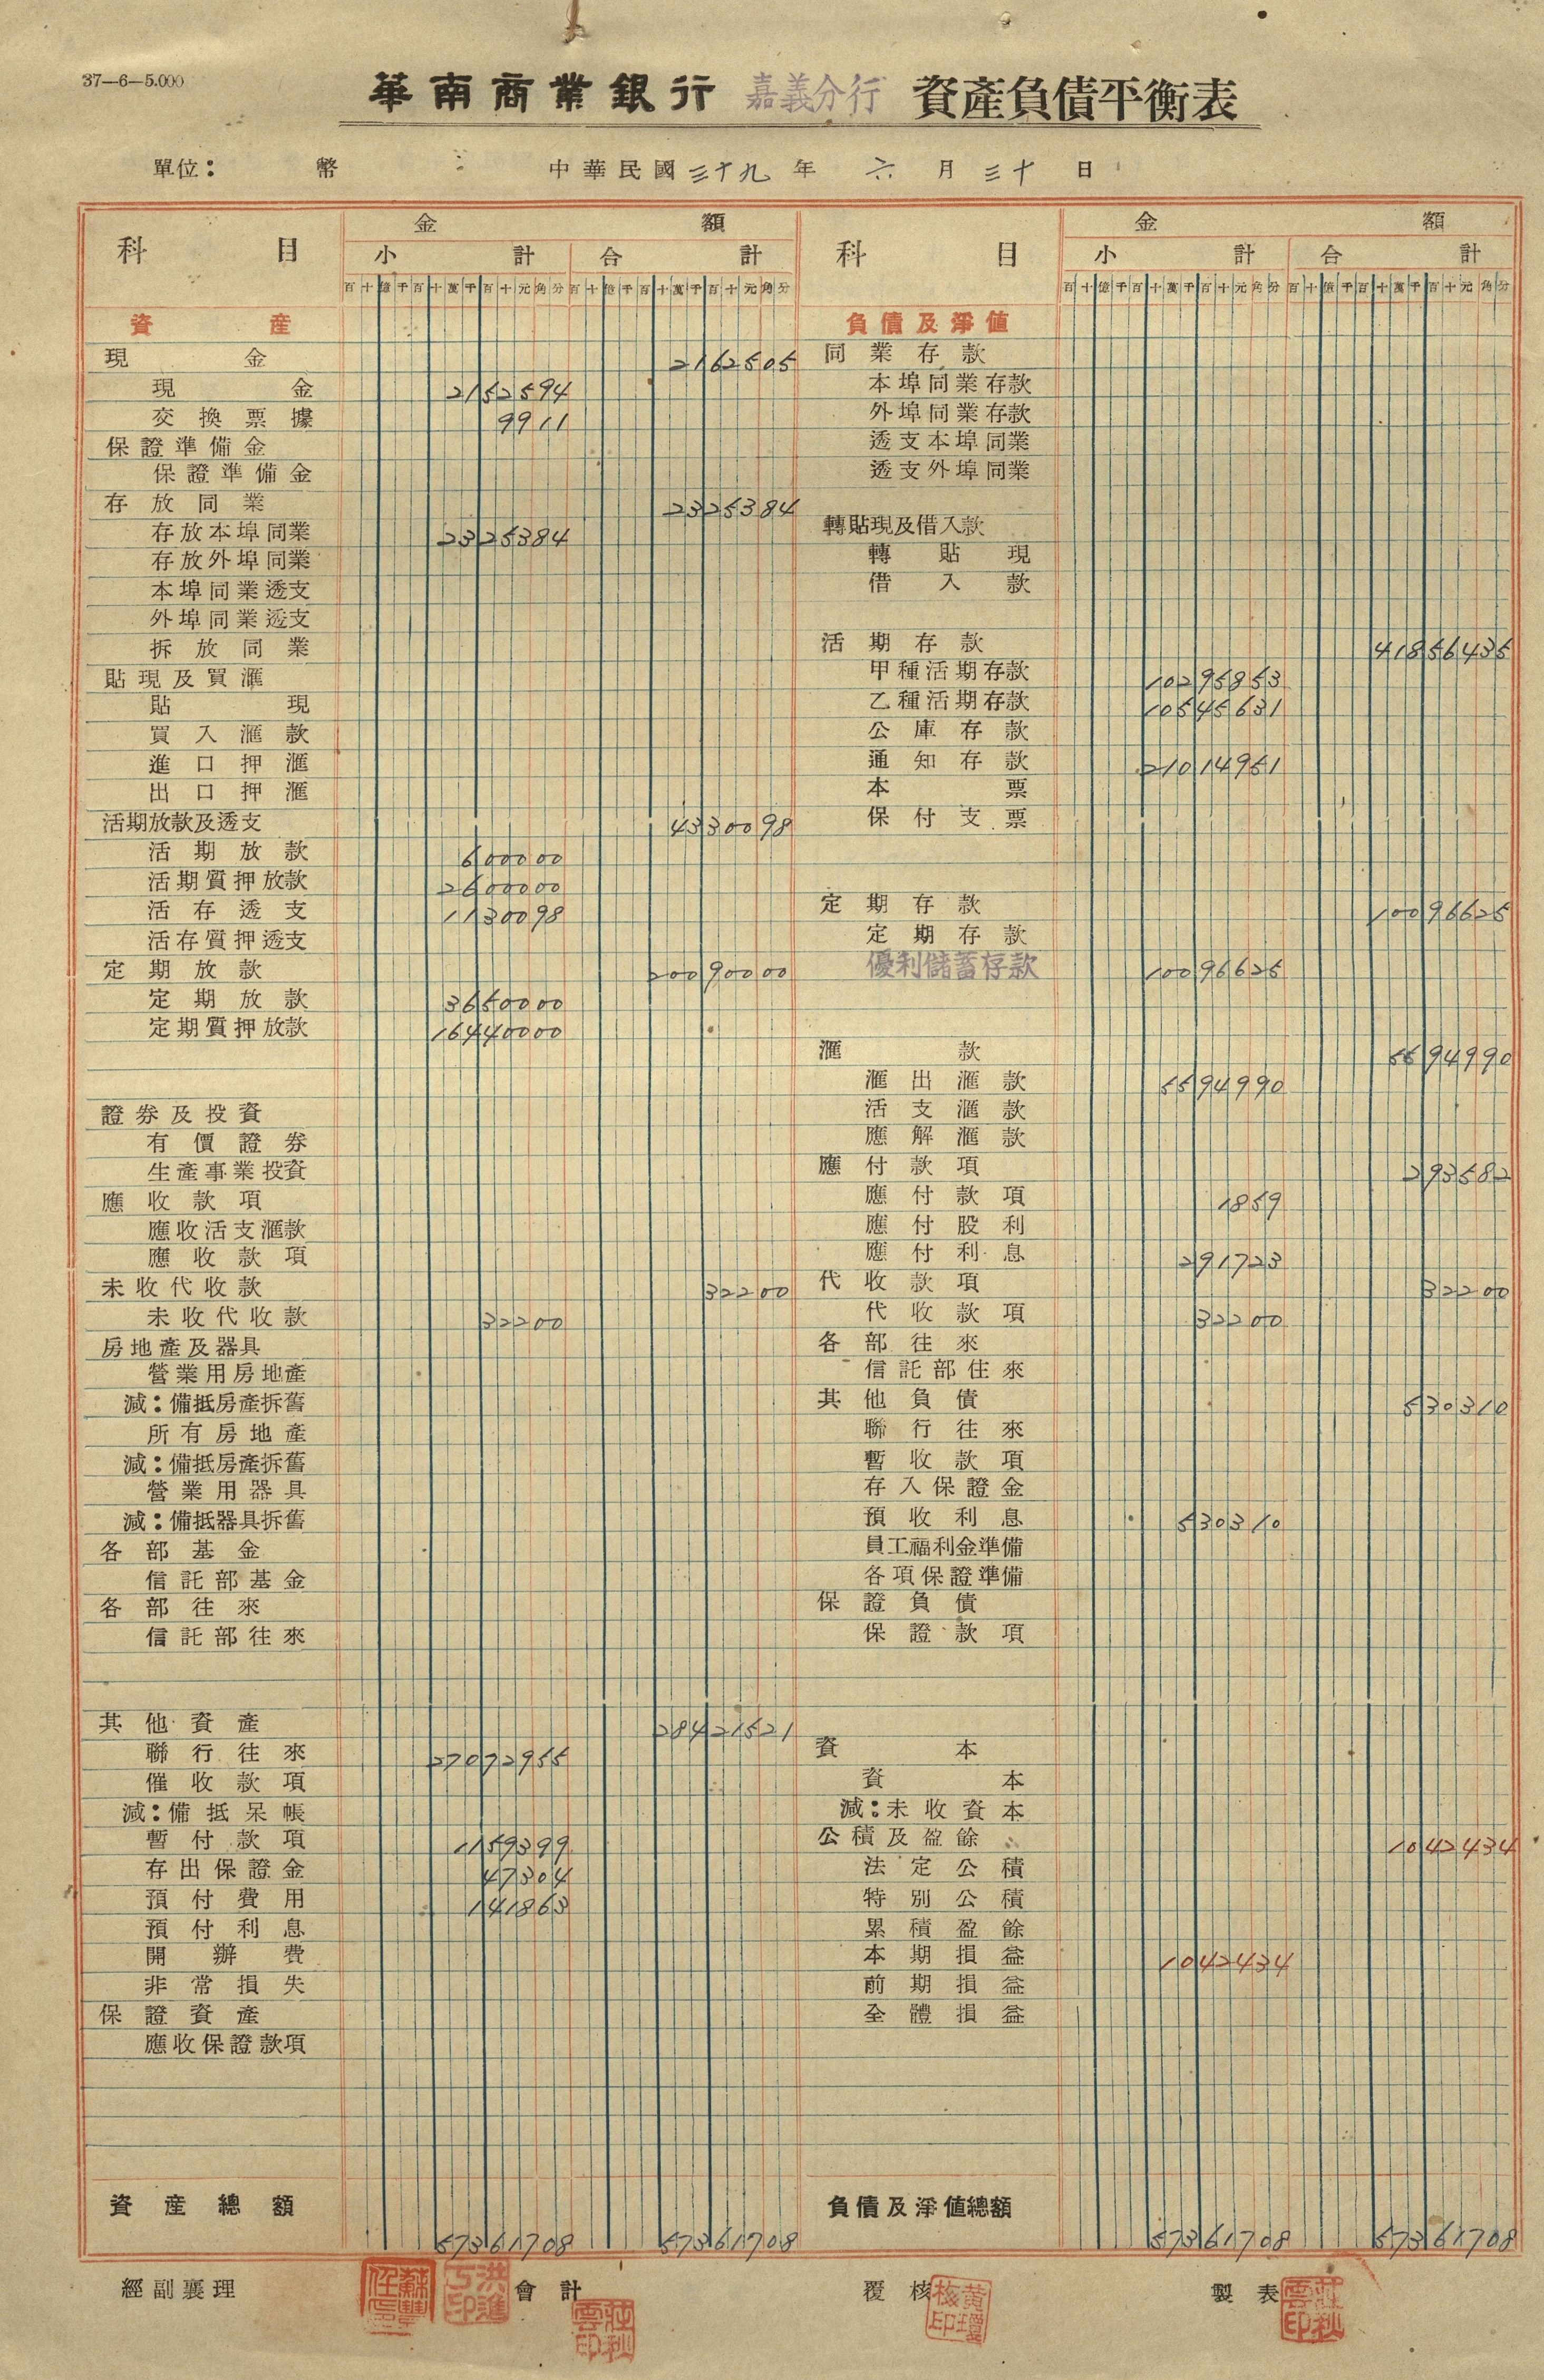 37—6—5.000
華南商業銀行 嘉義分行 資產負債平衡表
單位： 幣 中華民國三十九年 六月三十日
科目 金額
小計 合計
百十億千百十萬千百十元角分 百十億千百十萬千百十元角分
資產
現金 2162505
現金 2152594
交換票據 9911
保證準備金
保證準備金
存放同業 2325384
存放本埠同業 2325384
存放外埠同業
本埠同業透支
外埠同業透支
拆放同業
貼現及買滙
貼現
買入滙款
進口押滙
出口押滙
活期放款及透支 4330098
活期放款 600000
活期質押放款 2600000
活存透支 1130098
活存質押透支
定期放款 20090000
定期放款 3650000
定期質押放款 16440000
證券及投資
有價證券
生產事業投資
應收款項
應收活支滙款
應收款項
未收代收款 32200
未收代收款 32200
房地產及器具
營業用房地產
減：備抵房產拆舊
所有房地產
減：備抵房產拆舊
營業用器具
減：備抵器具拆舊
各部基金
信託部基金
各部往來
信託部往來
其他資產 28421521
聯行往來 27072955
催收款項
減：備抵呆帳
暫付款項 1159399
存出保證金 47304
預付費用 141863
預付利息
開辦費
非常損失
保證資產
應收保證款項
資產總額 57361708 57361708
科目 金額
小計 合計
百十億千百十萬千百十元角分 百十億千百十萬千百十元角分
負債及淨值
同業存款
本埠同業存款
外埠同業存款
透支本埠同業
透支外埠同業
轉貼現及借入款
轉貼現
借入款
活期存款 41856435
甲種活期存款 10295853
乙種活期存款 10545631
公庫存款
通知存款 21014951
本票
保付支票
定期存款 10096625
定期存款
優利儲蓄存款 10096625
滙款 5594990
滙出滙款 5594990
活支滙款
應解滙款
應付款項 293582
應付款項 1859
應付股利
應付利息 291723
代收款項 32200
代收款項 32200
各部往來
信託部往來
其他負債 530310
聯行往來
暫收款項
存入保證金
預收利息 530310
員工福利金準備
各項保證準備
保證負債
保證款項
資本
資本
減：未收資本
公積及盈餘 1042434
法定公積
特別公積
累積盈餘
本期損益 1042434
前期損益
全體損益
負債及淨值總額 57361708 57361708
經副襄理 會計 莊秋雲印 覆核 黃瓊核印 製表 莊秋雲印